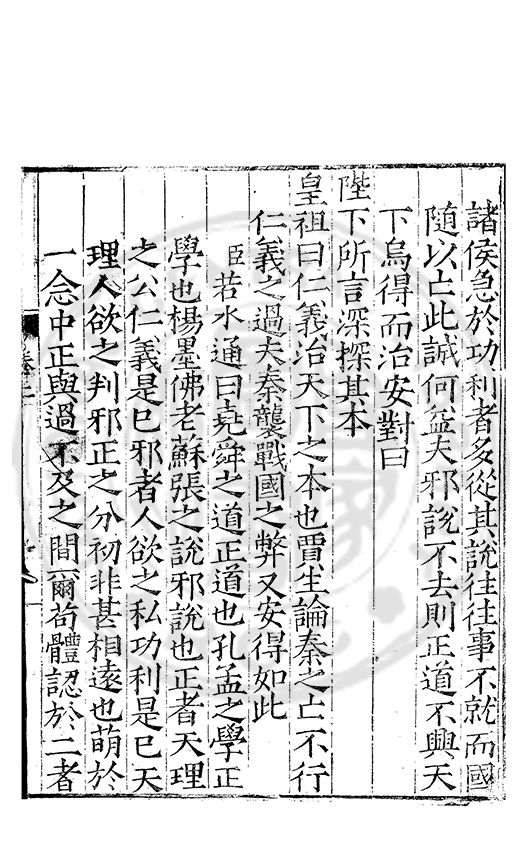 諸侯急於功利者多從其說往往事不就而國
隨以亡此誠何益夫邪說不去則正道不興天
下烏得而治安對曰
陛下所言深探其本
皇祖曰仁義治天下之本也賈生論秦之亡不行
仁義之過夫秦襲戰國之弊又安得如此
臣若水通曰堯舜之道正道也孔孟之學正
學也楊墨佛老蘇張之說邪說也正者天理
之公仁義是已邪者人欲之私功利是已天
理人欲之判邪正之分初非甚相遠也萌於
一念中正與過不及之間爾苟體認於二者